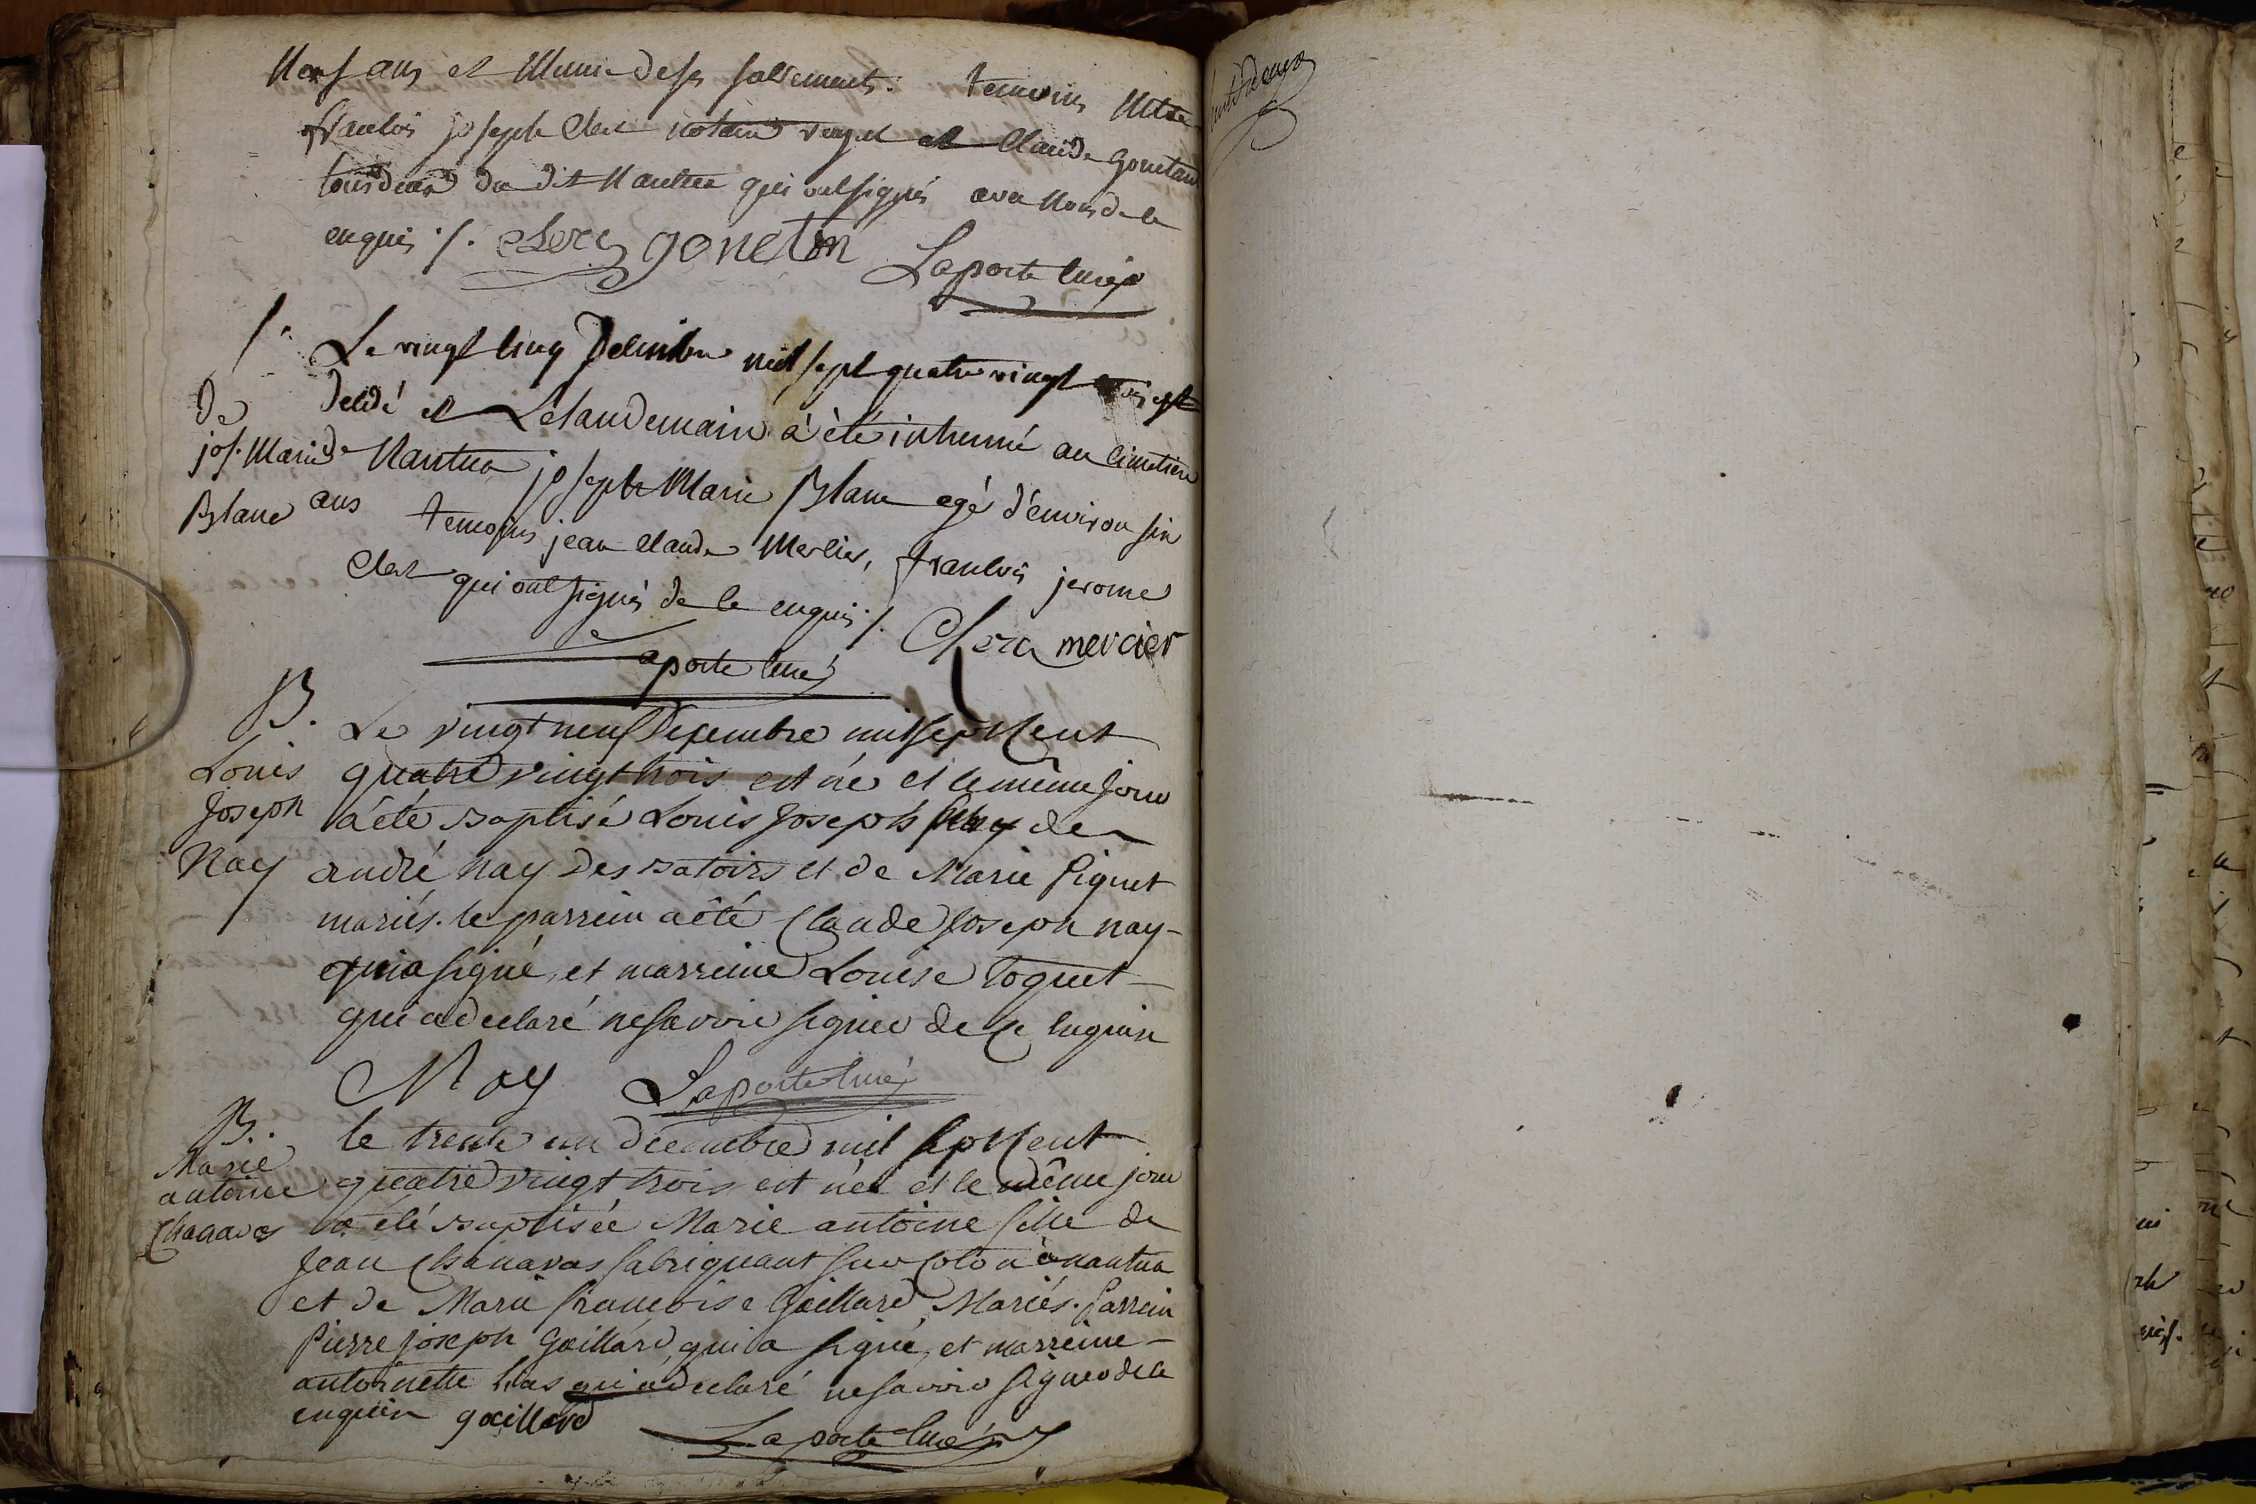 Neuf ans et Munie de ses sacrements. temoins Mtre
francois joseph Clerc notaire royal et Claude gonetan
tous deux du dit Nantua qui ont signés avec Nous de ce
enquis ./. Clerc goneton Laporte curé
Le vingt cinq Decembre mil sept quatre vingt trois est
De decedé et Le landemain à èté inhumé au cimetiere
jos. Marie de Nantua joseph Marie Blanc agé d'environ six
Blanc ans temoins jean claude Mercier, francois jerome
Clerc qui ont signés de ce enquis ./. Clerc mercier
Laporte curé
B. Le vingt neuf Decembre mil sept Cent
Louis quatre vingt trois est né et le même jour
Joseph a été Baptisé Louis Joseph de
Nay andré nay des Batoirs et de Marie Piquet
mariés. le parrein a été Claude Joseph nay
qui a signé, et marreine Louise Coquet
qui a declaré ne savoir signer de ce enquise
Noy Laporte curé
B. le trente un decembre mil sept Cent
Marie quatre vingt trois est née et le même jour
antoine a été Baptisée Marie antoine fille de
Chanavas Jean Chanavas fabriquant sur Coton à nantua
et de Marie francoise Gaillard Mariés. Parrein
Pierre joseph Gaillard, qui a signé, et marreine
antoinette has qui a declaré ne savoir signer de ce
enquise gaillard Laporte Curé